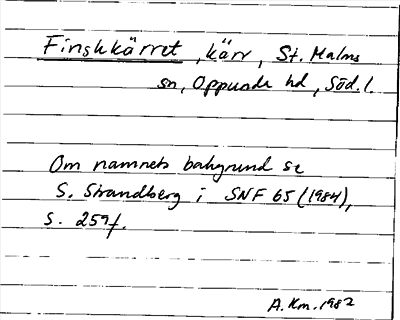 Finskkärret, kärr, St. Malms
sn, Oppunda hd, Söd. l.
Om namnets bakgrund se
S. Strandberg i SNF 65 (1984),
s. 259f.
A. Km. 1982